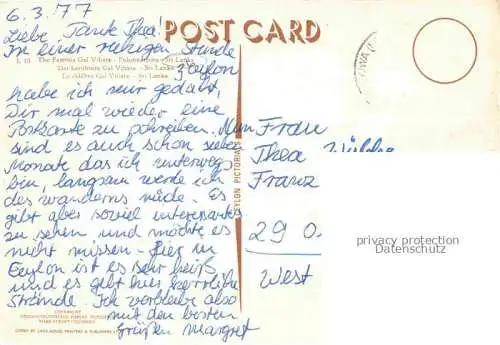 6.3.77
POST CARD
Liebe Tante Thea!
In einer ruhigen Stunde
J. 10. The Famous Gal Vihara - Polonnaruwa - Sri Lanka
Der berühmte Gal Vihara - Sri Lanka
Le célèbre Gal Vihara - Sri Lanka
Zeylon
habe ich mir gedacht,
Dir mal wieder eine
Postkarte zu schreiben. Nun
sind es auch schon sieben
Monate das ich unterwegs
bin, langsam werde ich
des wanderns müde. Es
gibt aber soviel interesantes
zu sehen und möchte es
nicht missen. Hier in
Ceylon ist es sehr heiß
und es gibt hier herrliche
Strände. Ich verbleibe also
mit den besten
Grüßen Margret
CEYLON PICTORIAL
Frau
Thea
Franz
290
West
privacy protection
Datenschutz
COPYRIGHT